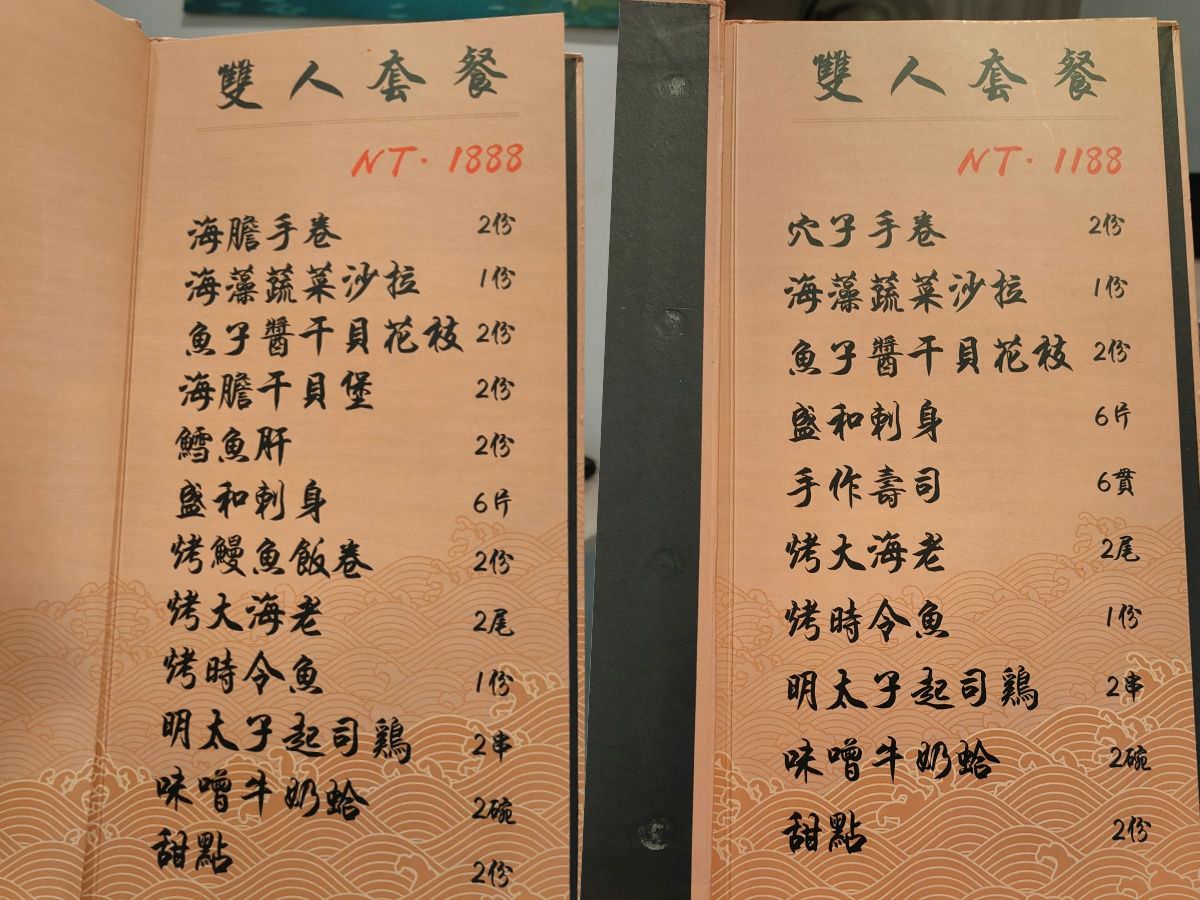 雙人套餐
NT. 1888
海膽手卷 2份
海藻蔬菜沙拉 1份
魚子醬干貝花枝 2份
海膽干貝堡 2份
鱈魚肝 2份
盛和刺身 6片
烤鰻魚飯卷 2份
烤大海老 2尾
烤時令魚 1份
明太子起司鷄 2串
味噌牛奶蛤 2碗
甜點 2份
雙人套餐
NT. 1188
穴子手卷 2份
海藻蔬菜沙拉 1份
魚子醬干貝花枝 2份
盛和刺身 6片
手作壽司 6貫
烤大海老 2尾
烤時令魚 1份
明太子起司鷄 2串
味噌牛奶蛤 2碗
甜點 2份